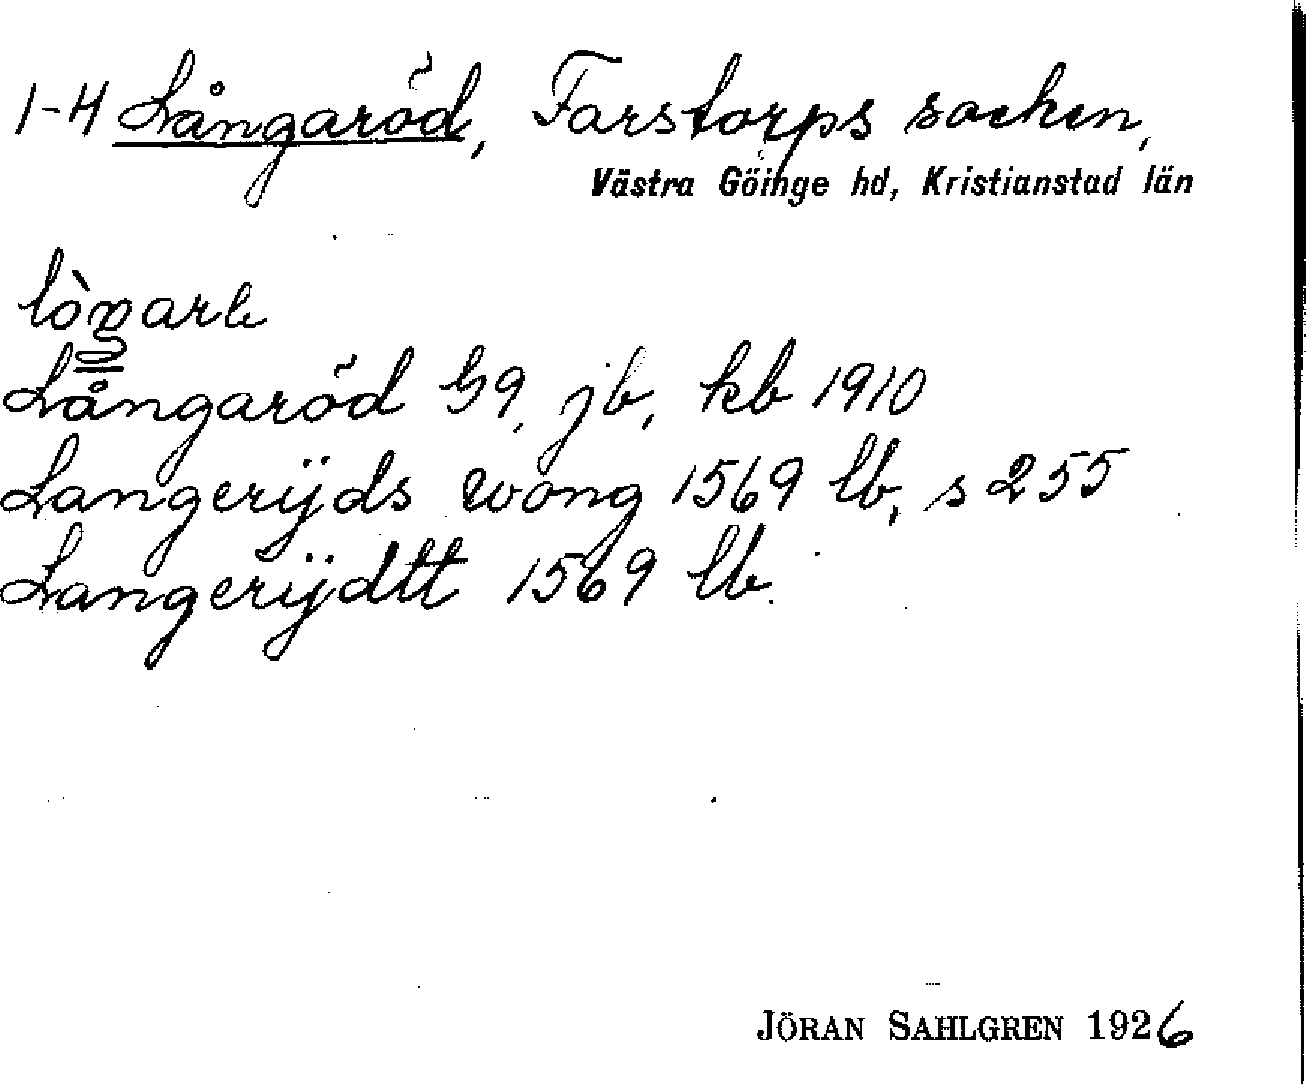 1-4 Långaröd, Farstorps socken,
Västra Göinge hd, Kristianstad län
Långaröd G9, jb, kb 1910
Langerÿds wong 1569 lb, s 255
Langerÿdtt 1569 lb.
JÖRAN SAHLGREN 1926